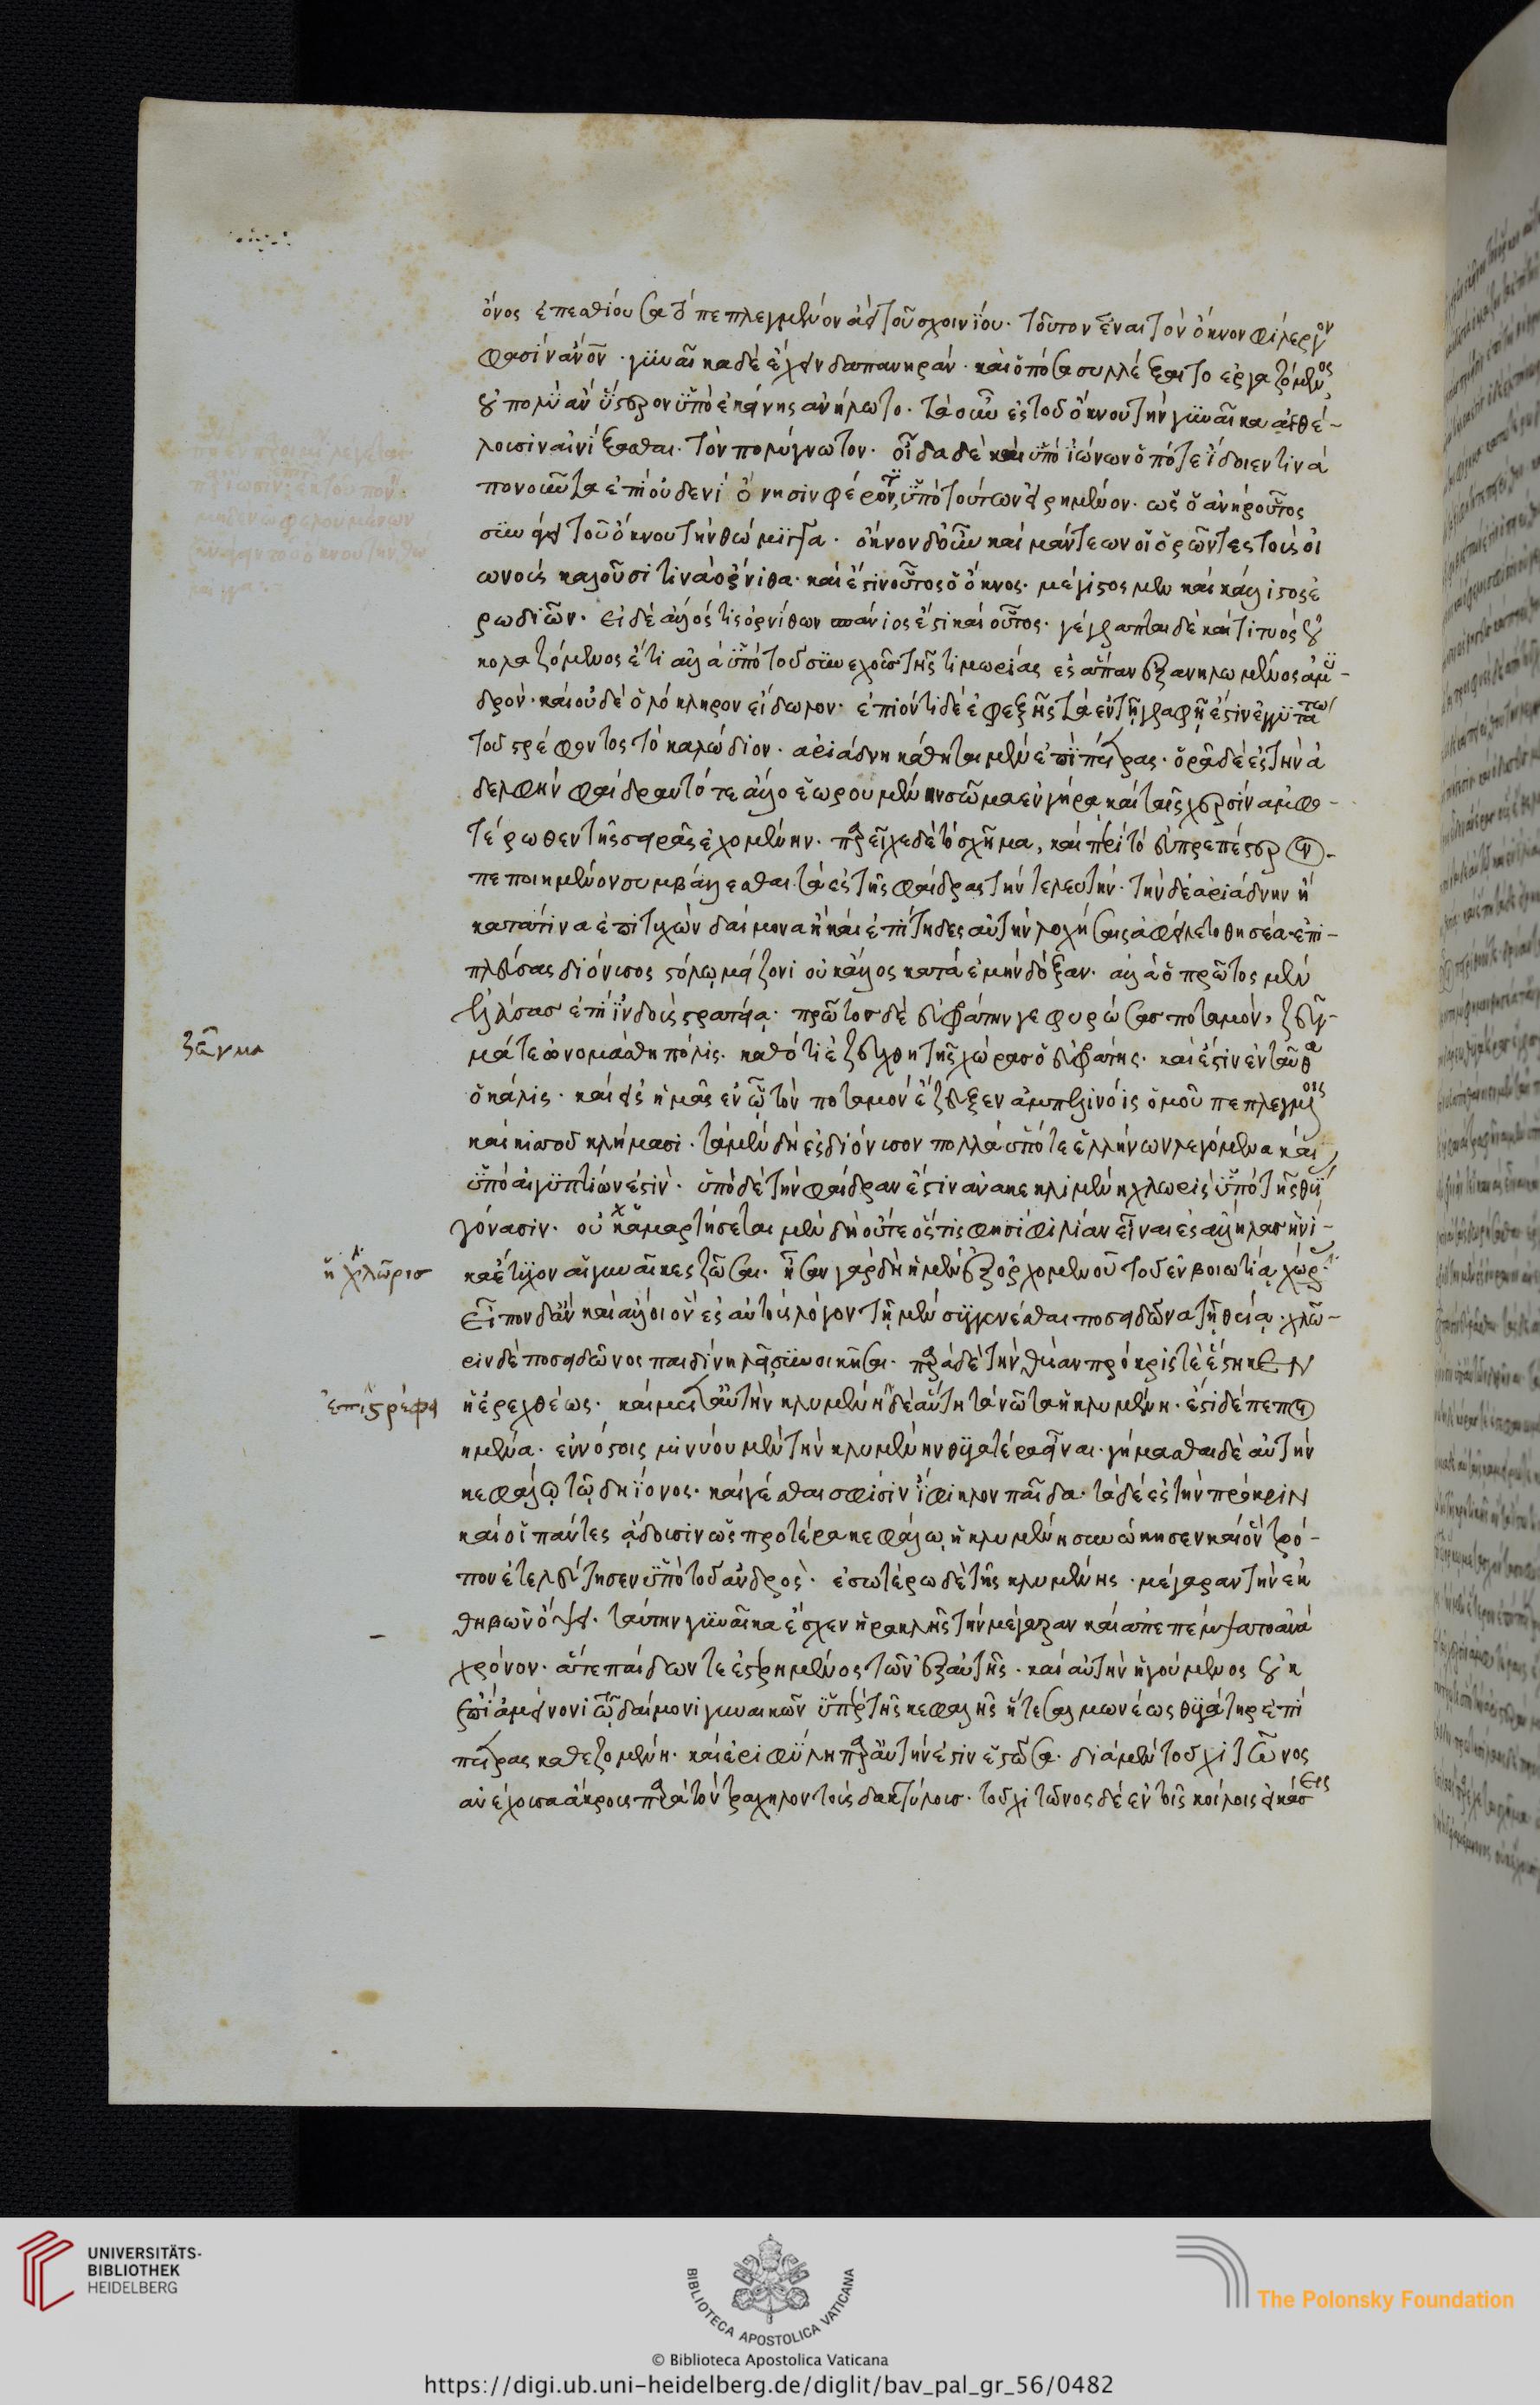 ὄνος ἐπεσθίουσα τὸ πεπλεγμένον ἀεὶ τοῦ σχοινίου. τοῦτον εἶναι τὸν ὄκνον φίλεργον
φασὶν ἄνον. γυναῖκα δὲ ἔχειν δαπανηράν. καὶ ὁπόσα συλλέξαιτο ἐργαζόμενος
οὐ πολὺ ἂν ὕστερον ὑπὸ ἐκείνης ἀνήλωτο. τὰ οὖν ἐς τοῦ ὄκνου τὴν γυναῖκα ἐθέ-
λουσιν αἰνίξασθαι τὸν πολύγνωτον. οἶδα δὲ καὶ ὑπὸ ἰώνων ὁπότε ἴδοιεν τινὰ
πονοῦντα ἐπὶ οὐδενὶ ὄνησιν φέροντι, ὑπὸ τούτων εἰρημένον. ὡς ὁ ἀνὴρ οὗτος
συνάγει τοῦ ὄκνου τὴν θώμιγγα. ὄκνον δ' οὖν καὶ μάντεων οἱ ὁρῶντες τοὺς οἰ
ωνοὺς καλοῦσί τινα ὄρνιθα. καὶ ἔστιν οὗτος ὁ ὄκνος. μέγιστος μὲν καὶ κάλλιστος ἐ
ρωδιῶν. εἰ δὲ ἄλλός τις ὀρνίθων σπάνιός ἐστι καὶ οὗτος. γέγραπται δὲ καὶ τιτυὸς οὐ
κολαζόμενος ἔτι ἀλλὰ ὑπὸ τοῦ συνεχοῦς τῆς τιμωρίας ἐς ἅπαν ἐξανηλωμένος ἀμυ-
δρὸν. καὶ οὐδὲ ὁλόκληρον εἴδωλον. ἐπιόντι δὲ ἐφεξῆς τὰ ἐν τῇ γραφῇ ἐστὶν ἐγγυτάτω
τοῦ στρέφοντος τὸ καλώδιον. ἀριάδνη κάθηται μὲν ἐπὶ πέτρας. ὁρᾷ δὲ ἐς τὴν ἀ
δελφὴν φαίδραν τό τε ἄλλο αἰωρουμένην σῶμα ἐν σειρᾷ, καὶ ταῖς χερσὶν ἀμφο-
τέρωθεν τῆς σειρᾶς ἐχομένην. παρεῖχε δὲ τὸ σχῆμα, καίπερ ἐς τὸ εὐπρεπέστερον
πεποιημένον συμβάλλεσθαι τὰ ἐς τῆς φαίδρας τὴν τελευτήν. τὴν δὲ ἀριάδνην ἢ
κατά τινα ἐπιτυχὼν δαίμονα ἢ καὶ ἐπίτηδες αὐτὴν λοχήσας ἀφείλετο θησέα. ἐπι-
πλεύσας διόνυσος στόλῳ μείζονι οὐκ ἄλλος κατὰ ἐμὴν δόξαν. ἀλλὰ ὁ πρῶτος μὲν
ἐλάσας ἐπὶ ἰνδοὺς στρατείᾳ. πρῶτος δὲ εὐφράτην γεφυρώσας ποταμόν, ζεῦγ-
μά τε ὠνομάσθη πόλις. καθότι ἐζεύχθη τῆς χώρας ὁ εὐφράτης. καὶ ἔστιν ἐνταῦθα
ζεῦγμα
ὁ κάλως. καὶ ἐς ἡμᾶς ἐν ᾧ τὸν ποταμὸν ἔζευξεν ἀμπελίνοις ὁμοῦ πεπλεγμένοις
καὶ κισσοῦ κλήμασι. τὰ μὲν δὴ ἐς διόνυσον πολλὰ ὑπό τε ἑλλήνων λεγόμενα καὶ
ὑπὸ αἰγυπτίων ἐστὶν. ὑπὸ δὲ τὴν φαίδραν ἐστὶν ἀνακεκλιμένη χλωρὶς ὑπὸ τῆς θυί
γόνασιν. οὐχ ἁμαρτήσεται μὲν δὴ οὐδὲ ὅστις φησὶ φιλίαν εἶναι ἐς ἀλλήλας ἡνί-
κα ἔτυχον αἱ γυναῖκες ζῶσαι. ἦσαν γὰρ δὴ ἡ μὲν ἐξ ὀρχομενοῦ τοῦ ἐν βοιωτίᾳ χλωρ.
ἡ χλῶρις
εἶπον δ' ἂν καὶ ἄλλοι ἐς αὐτοὺς λόγον τῇ μὲν συγγενέσθαι ποσειδῶνα τῇ θυίᾳ. χλῶ-
ριν δὲ ποσειδῶνος παιδὶ νηλεῖ συνοικῆσαι. παρὰ δὲ τὴν θυίαν πρόκρις τε ἕστηκεν
ἡ ἐρεχθέως. καὶ μετ' αὐτὴν κλυμένη δὲ αὕτη τὰ νῶτα ἡ κλυμένη. ἔστι δὲ πεποι
ἐπιστρέφει
ημένα. ἐν νόστοις μινύου μὲν τὴν κλυμένην θυγατέρα εἶναι. γήμασθαι δὲ αὐτὴν
κεφάλῳ τῷ δηίονος. καὶ γέσθαι σφίσιν ἴφικλον παῖδα. τὰ δὲ ἐς τὴν πρόκριν
καὶ οἱ πάντες ᾄδουσιν ὡς προτέρα κεφάλῳ ἢ κλυμένη συνῴκησεν καὶ ὃν τρό-
πον ἐτελεύτησεν ὑπὸ τοῦ ἀνδρὸς. ἐσωτέρω δὲ τῆς κλυμένης. μέγαραν τὴν ἐκ
θηβῶν ὄψει. ταύτην γυναῖκα ἔσχεν ἡρακλῆς τὴν μέγαραν καὶ ἀπεπέμψατο ἀνὰ
χρόνον. ἅτε παίδων τε ἐστερημένος τῶν ἐξ αὐτῆς. καὶ αὐτὴν ἡγούμενος οὐκ
ἐπὶ ἀμείνονι τῷ δαίμονι γυναικῶν ὑπὲρ τῆς κεφαλῆς ἥ τε σαλμωνέως θυγάτηρ ἐπὶ
πέτρας καθεζομένη. καὶ ἐριφύλη παρ' αὐτὴν ἐστὶν ἑστῶσα. διὰ μὲν τοῦ χιτῶνος
ἀνέχουσα ἄκρους παρὰ τὸν τράχηλον τοὺς δακτύλους. τοῦ χιτῶνος δὲ ἐν τοῖς κοίλοις εἰκάσεις
UNIVERSITÄTS-
BIBLIOTHEK
HEIDELBERG
BIBLIOTECA APOSTOLICA VATICANA
The Polonsky Foundation
© Biblioteca Apostolica Vaticana
https://digi.ub.uni-heidelberg.de/diglit/bav_pal_gr_56/0482